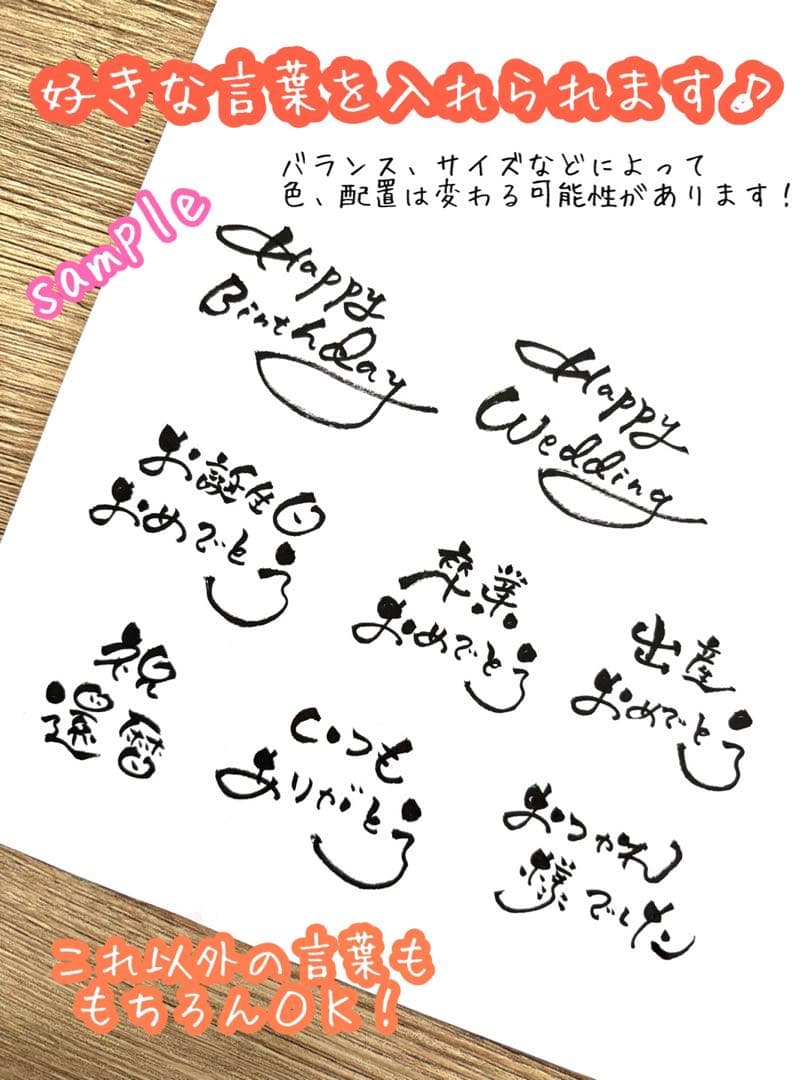 好きな言葉を入れられます♪
バランス、サイズなどによって
色、配置は変わる可能性があります！
sample
Happy
Birthday
Happy
Wedding
お誕生日
おめでとう
卒業
おめでとう
出産
おめでとう
祝
還暦
いつも
ありがとう
おつかれ
様でした
これ以外の言葉も
もちろんOK！